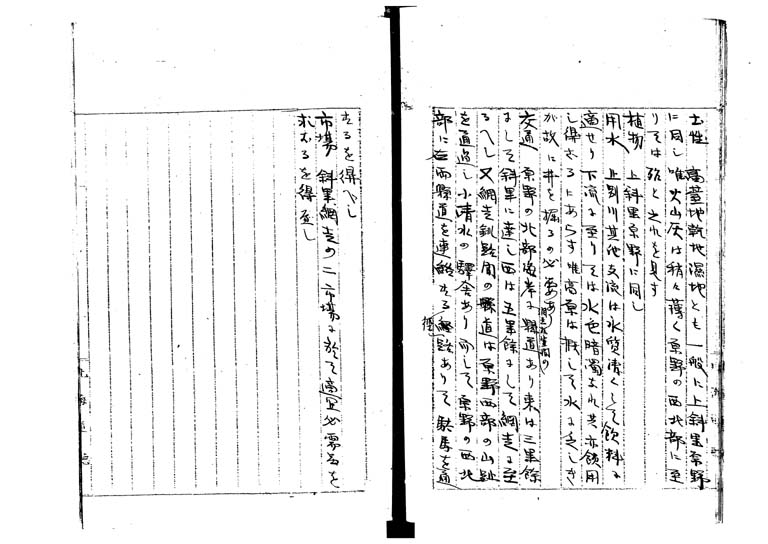 土性 高臺地軟地濕地とも一般に上斜里原野
に同し唯火山灰は稍々薄く原野の西北部に至
りては殆と之れを見す
植物 上斜里原野に同し
用水 止別川其他支流は水質清くして飲料に
適せり下流に至りては水色暗濁なれ共亦飲用
し得さるにあらす唯高原は概して水に乏しき
か故に井を掘るの必要あり
交通 原野の北部海岸に縣道あり東は三里餘
にして斜里に達し西は五里餘にして網走に至
るへし又網走釧路間の縣道は原野西部の山趾
を通過し小清水の驛舎あり而して原野の西北
部に 両縣道を連絡する 路ありて駄馬を通
するを得へし
市場 斜里網走の二市場に於て適宜必需品を
求むるを得へし
北海道廳